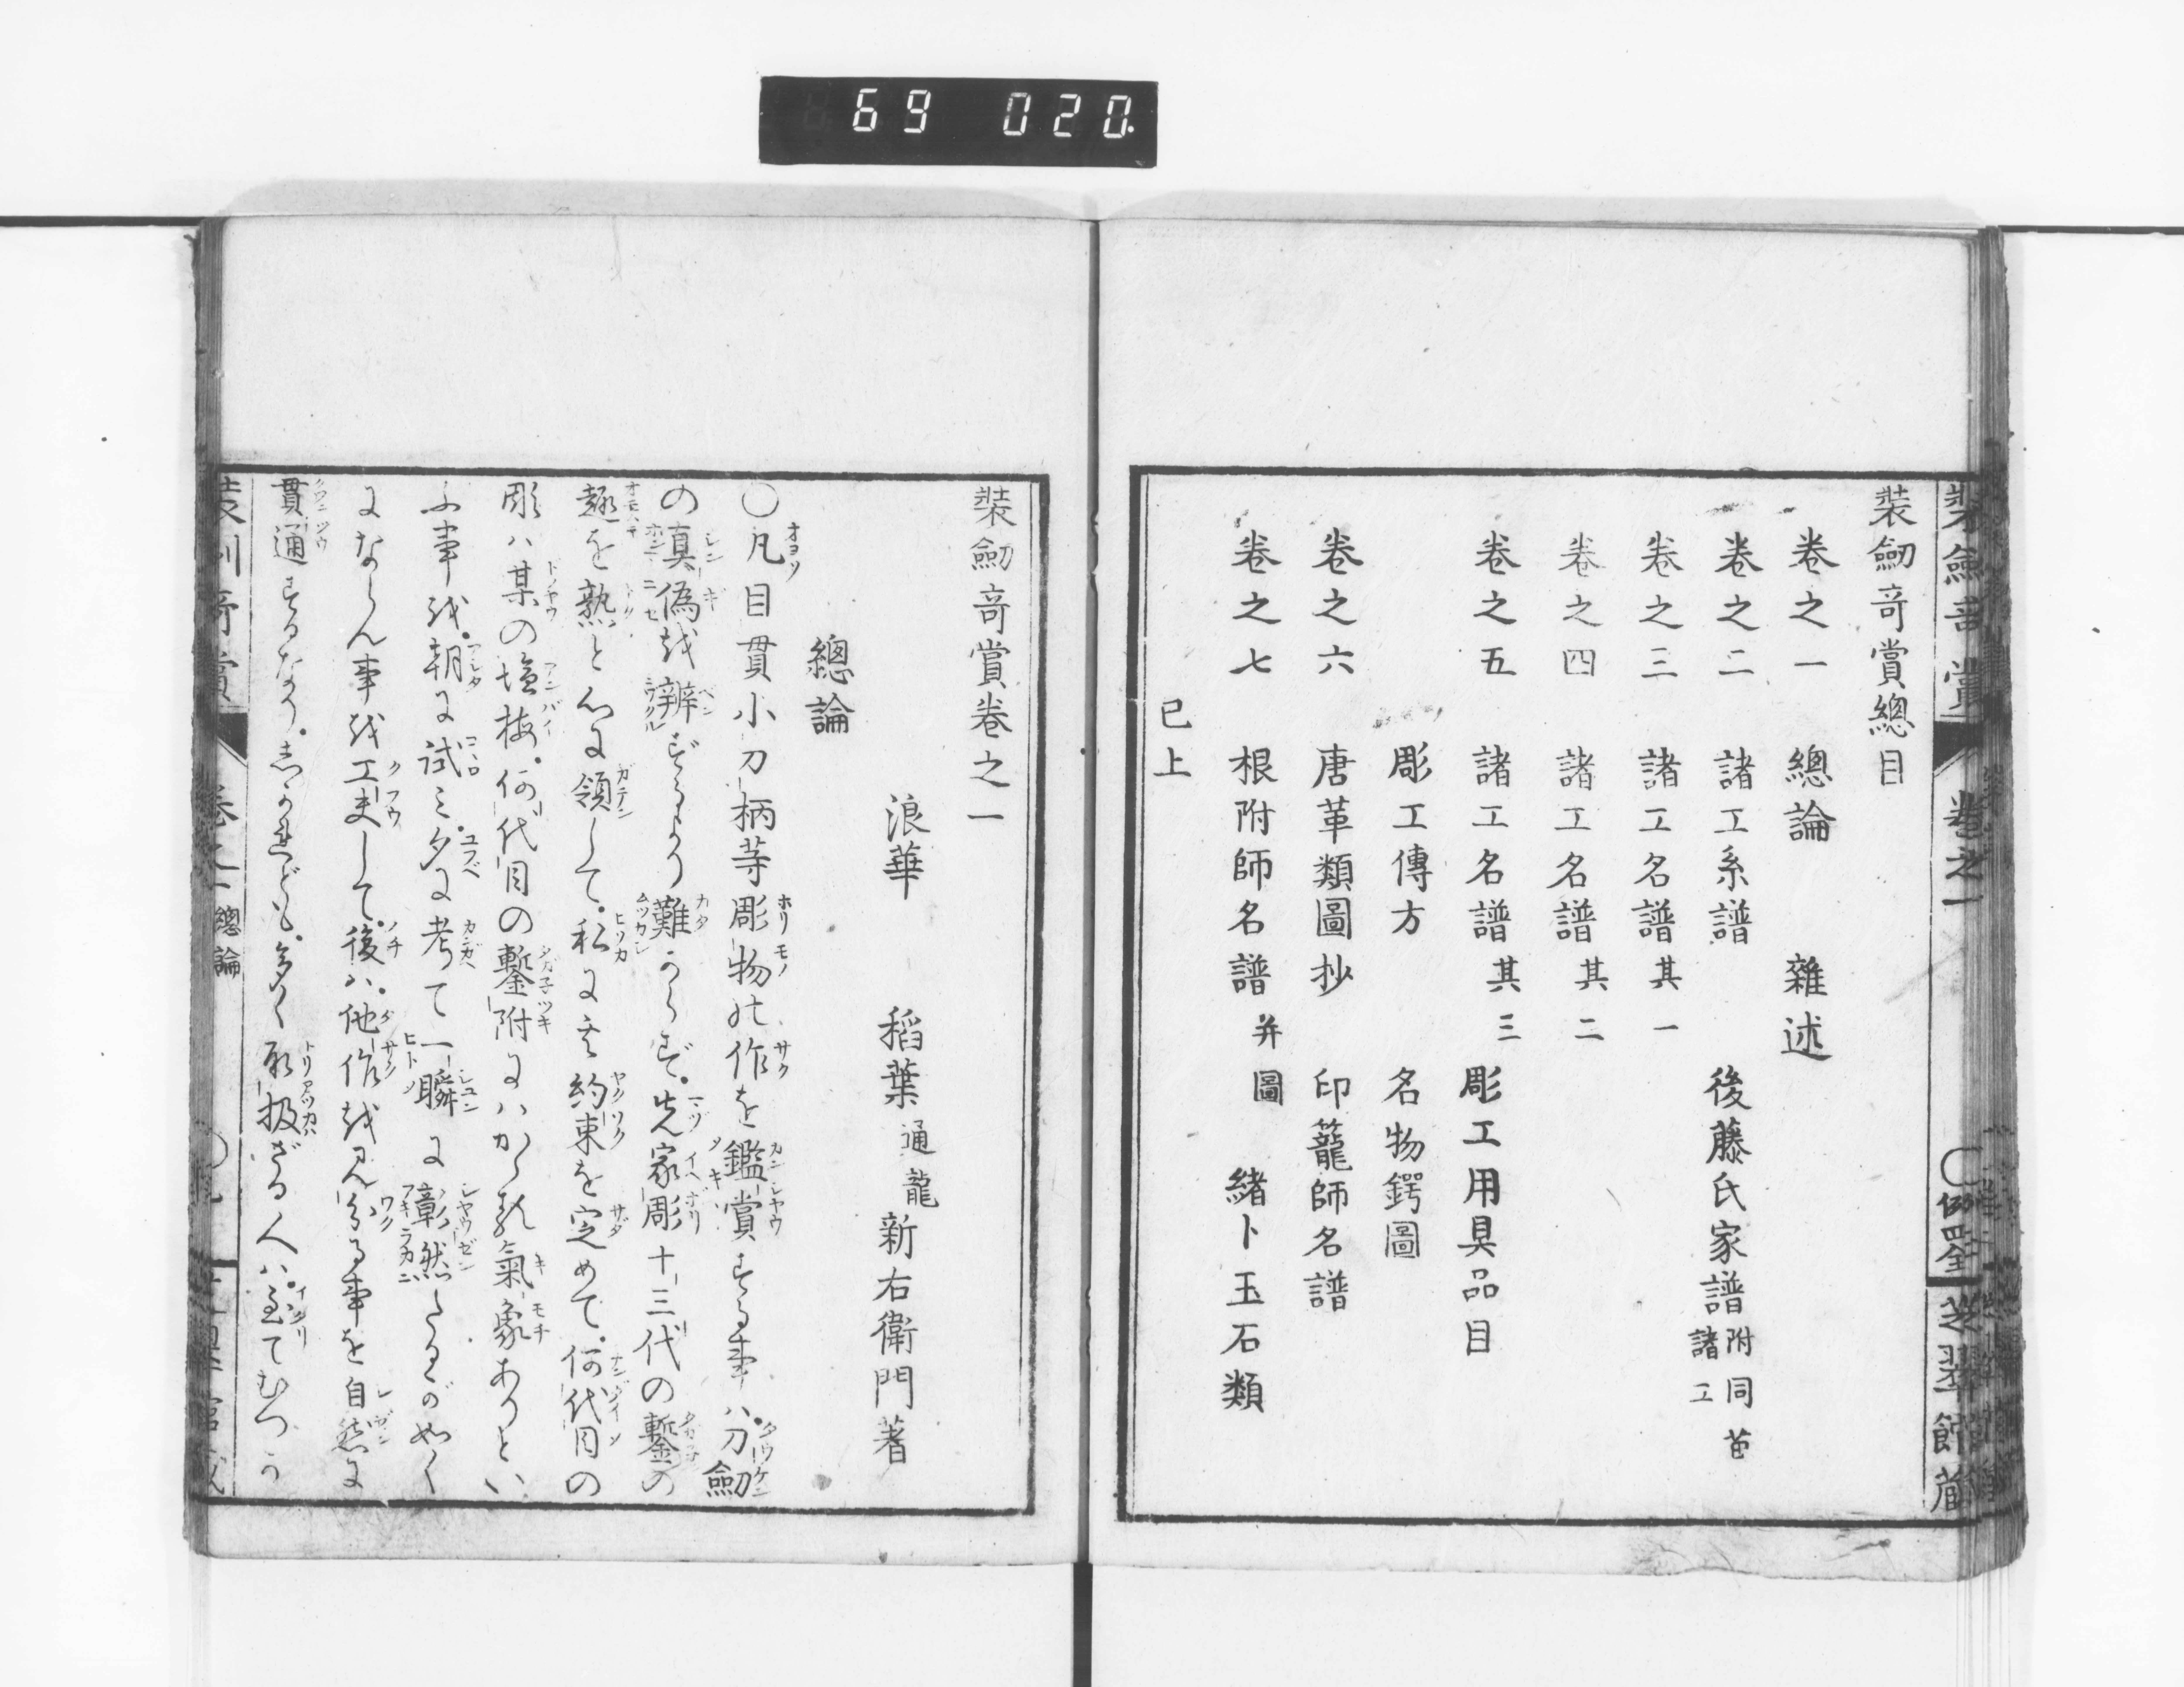 69 020.
裝劒竒賞總目
卷之一 總論 雜述
卷之二 諸工系譜 後藤氏家譜 附同苗諸工
卷之三 諸工名譜 其一
卷之四 諸工名譜 其二
卷之五 諸工名譜 其三 彫工用具品目
彫工傳方 名物鍔圖
卷之六 唐革類圖抄 印籠師名譜
卷之七 根附師名譜 并圖 緒卜玉石類
已上
裝劒竒賞卷之一
浪華 稻葉通龍新右衛門著
總論
〇凡目貫小刀柄等彫物の作を鑑賞する事ハ刀劒
の真偽を辨ずるより難からず。先家彫十三代の鏨の
趣を熟と心に領して。私に其約束を定めて。何代目の
彫ハ某の塩梅。何代目の鏨附にハかゝる氣象ありとい
ふ事を。朝に試ミ。夕に考て一瞬に彰然たるがごとく
にならん事を工夫して。後ハ。他作を見分る事を自然に
貫通するなり。しかれども。多く取扱ざる人ハ。至てむつか
裝劒竒賞 卷之一 總論